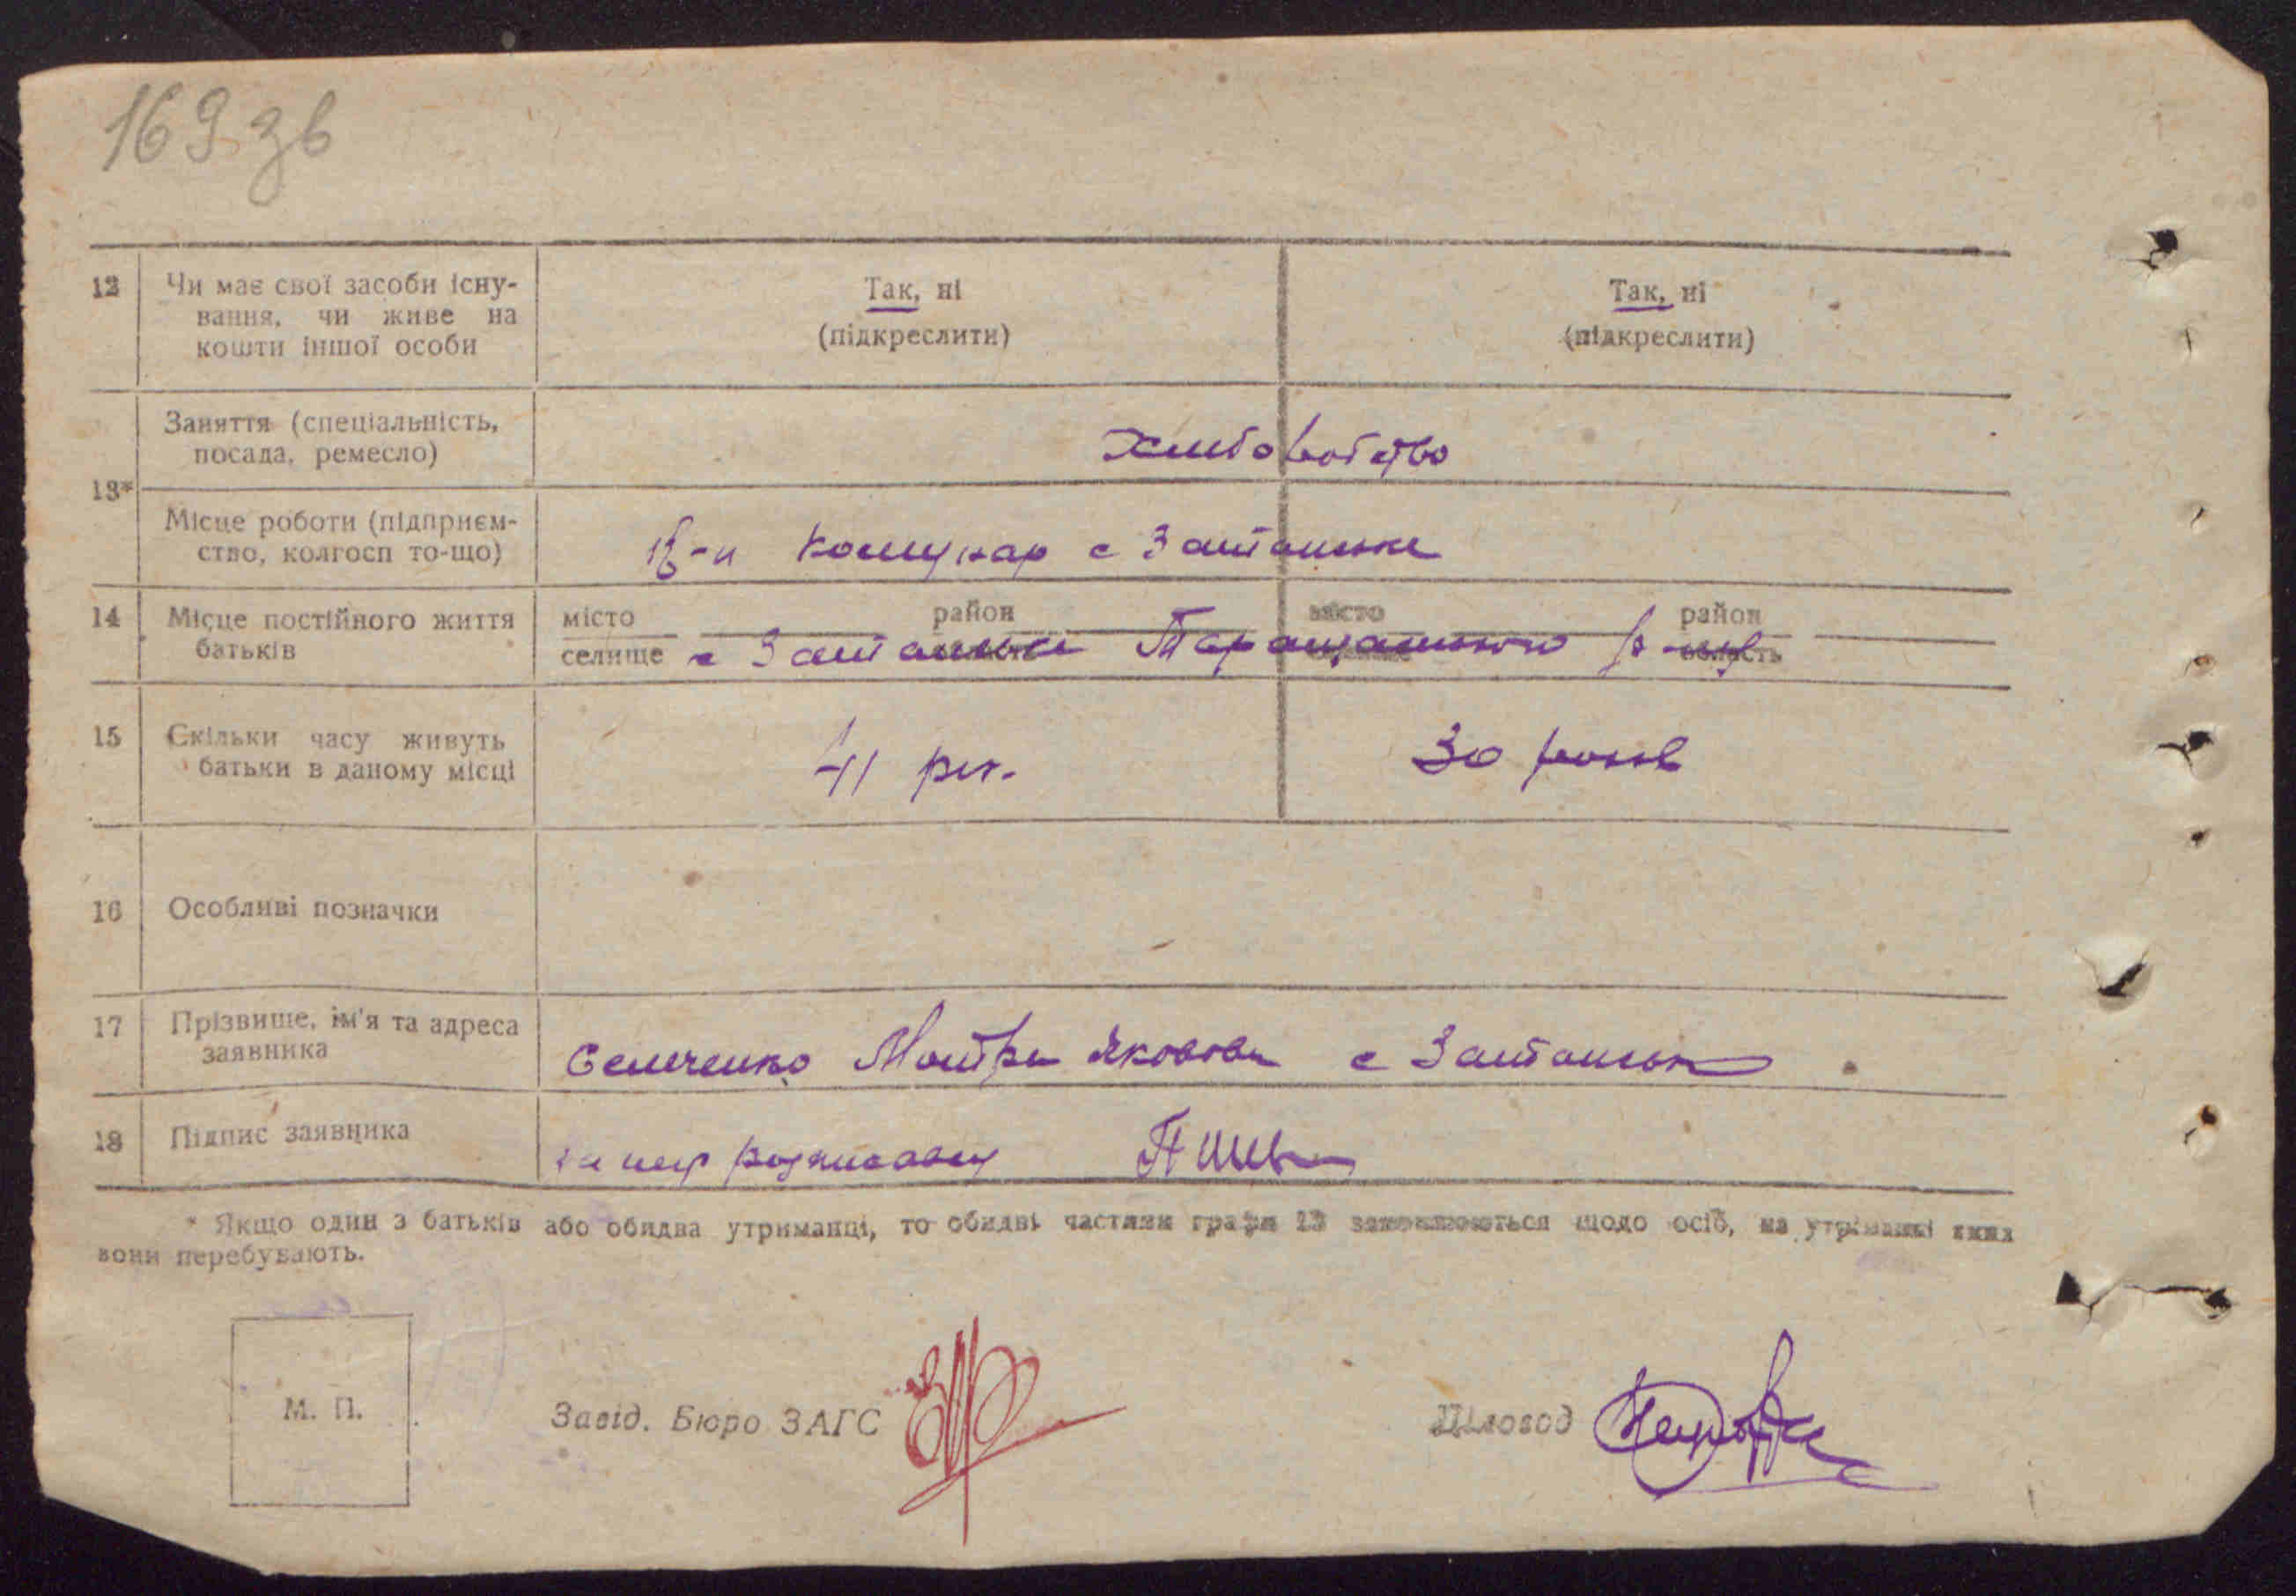 169 зв
12 Чи має свої засоби існу- Так, ні Так, ні
вання, чи живе на (підкреслити) (підкреслити)
кошти іншої особи
Заняття (спеціальність,
посада, ремесло) хліборобство
13*
Місце роботи (підприєм-
ство, колгосп то-що) Комунар с
14 Місце постійного життя місто район місто район
батьків селище с Таращанського р-ну область
15 Скільки часу живуть 41 рік. 30 років
батьки в даному місці
16 Особливі позначки
17 Прізвище, ім'я та адреса
заявника Семченко Мотря Яковівна с
18 Підпис заявника
* Якщо один з батьків або обидва утриманці, то обидві частини графи 13 заповнюються щодо осіб, на утриманні яких
вони перебувають.
М. П. Завід. Бюро ЗАГС Діловод